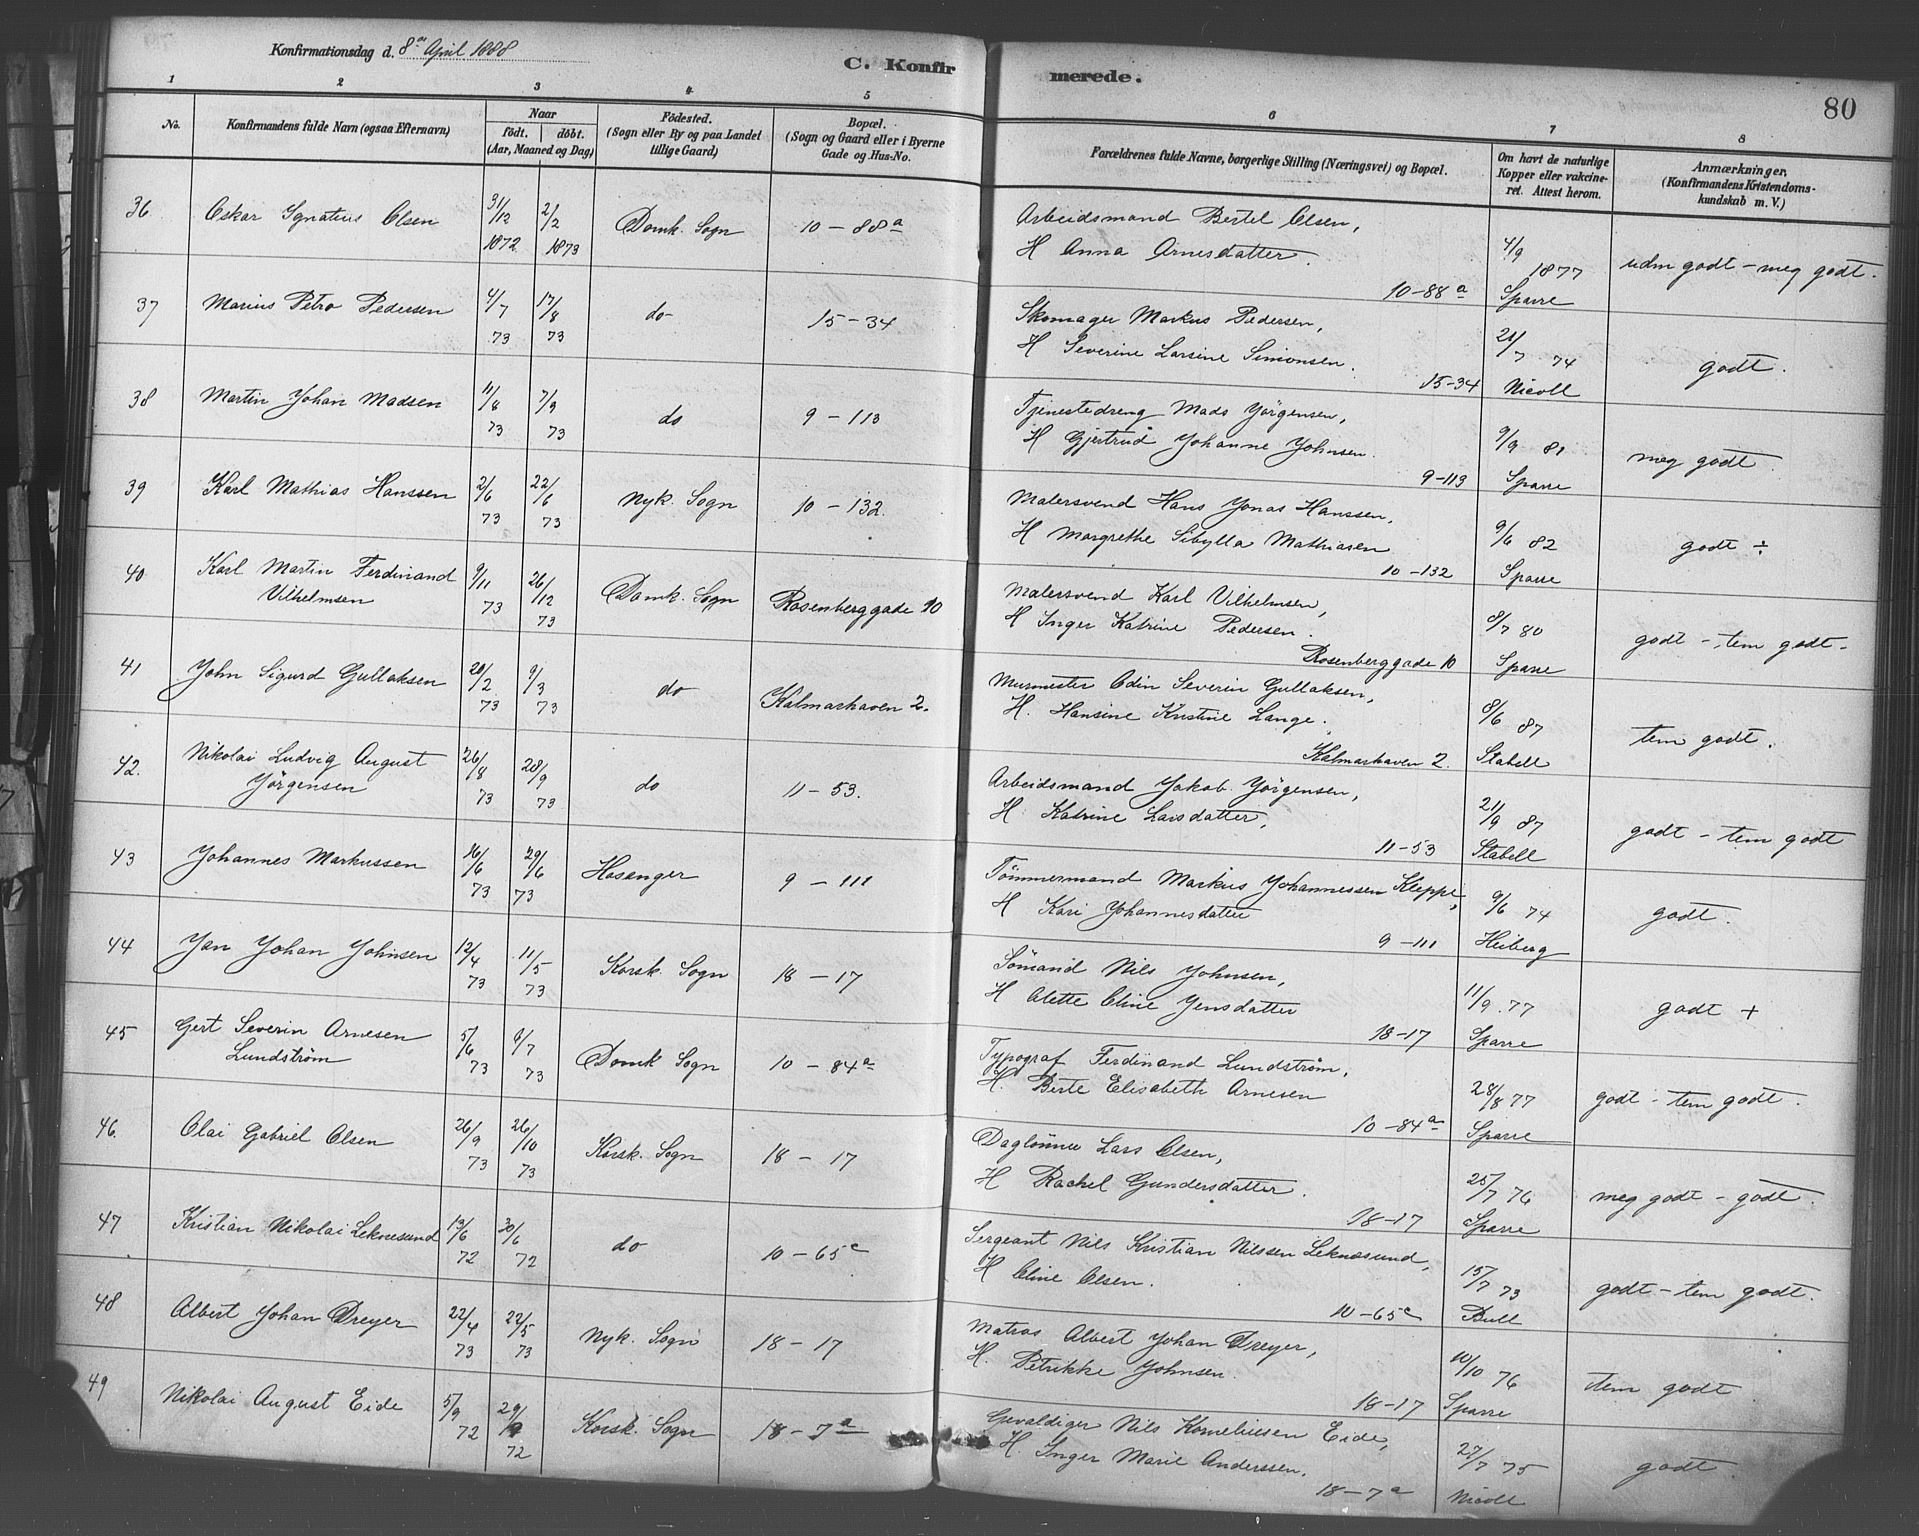 Konfirmationsdag d. 8de April 1888
C. Konfirmerede.
80
1 2 3 4 5 6 7 8
No. Konfirmandens fulde Navn (ogsaa Efternavn) Naar födt. döbt. (Aar, Maaned og Dag) Födested. (Sogn eller By og paa Landet tillige Gaard) Bopæl. (Sogn og Gaard eller i Byerne Gade og Hus-No. Forældrenes fulde Navne, borgerlige Stilling (Næringsvei) og Bopæl. Om havt de naturlige Kopper eller vakcineret. Attest herom. Anmærkninger. (Konfirmandens Kristendomskundskab m. V.)
36 Oskar Ignatius Olsen 31/12 1872 2/2 1873 Domk. Sogn 10 – 88a Arbeidsmand Bertel Olsen,
H Anna Arnesdatter. 10-88a 4/9 1877 Sparre udm godt – meg godt.
37 Marius Petro Pedersen 4/7 73 17/8 73 do 15 – 34 Skomager Markus Pedersen,
H Severine Larsine Simonsen. 15-34 21/7 74 Nicoll godt.
38 Martin Johan Madsen 11/8 73 7/9 73 do 9 – 113 Tjenestedreng Mads Jörgensen,
H Gjertrud Johanne Johnsen. 9-113 9/9 81 Sparre meg godt.
39 Karl Mathias Hanssen 2/6 73 22/6 73 Nyk. Sogn 10 – 132. Malersvend Hans Jonas Hanssen,
H Margrethe Sibylla Mathiasen 10-132 9/6 82 Sparre godt ÷
40 Karl Martin Ferdinand
Vilhelmsen 9/11 73 26/12 73 Domk. Sogn Rosenberggade 10 Malersvend Karl Vilhelmsen,
H Inger Katrine Pedersen. Rosenberggade 10 8/7 80 Sparre godt – tem godt.
41 John Sigurd Gullaksen 20/2 73 9/3 73 do Kalmarhaven 2. Murmester Odin Severin Gullaksen,
H. Hansine Kristine Lange. Kalmarhaven 2. 8/6 87 Stabell tem godt.
42. Nikolai Ludvig August
Jörgensen 26/8 73 28/9 73 do 11 – 53. Arbeidsmand Jakob Jörgensen,
H. Katrine Larsdatter, 11-53 21/9 87 Stabell godt – tem godt
43 Johannes Markussen 16/6 73 29/6 73 Hosanger 9 – 111 Tömmermand Markus Johannessen Kleppe,
H Kari Johannesdatter 9-111 9/6 74 Heiberg godt.
44 Jan Johan Johnsen 12/4 73 11/5 73 Korsk. Sogn 18 – 17 Sömand Nils Johnsen,
H Alette Oline Jensdatter 18-17 11/9 77 Sparre godt +
45 Gert Severin Arnesen
Lundström 5/6 73 6/7 73 Domk Sogn 10 – 84a Typograf Ferdinand Lundström,
H. Berte Elisabeth Arnesen 10-84a 28/8 77 Sparre godt – tem godt.
46. Olai Gabriel Olsen 26/9 73 26/10 73 Korsk. Sogn 18 – 17 Daglönner Lars Olsen,
H Rachel Gundersdatter. 18-17 25/7 76 Sparre meg godt – godt.
47 Kristian Nikolai Leknesund 13/6 72 30/6 72 do 10 – 65c Sergeant Nils Kristian Nilssen Leknesund,
H Oline Olsen. 10-65c 15/7 73 Bull godt – tem godt.
48 Albert Johan Dreyer 22/4 73 22/5 73 Nyk. Sogn 18 – 17 Matros Albert Johan Dreyer,
H. Petrikke Johnsen. 18-17 10/10 76 Sparre tem godt
49 Nikolai August Eide 5/9 72 29/9 72 Korsk. Sogn 18 – 7a Gevaldiger Nils Korneliusen Eide,
H. Inger Marie Anderssen. 18-7a 27/7 75 Nicoll godt